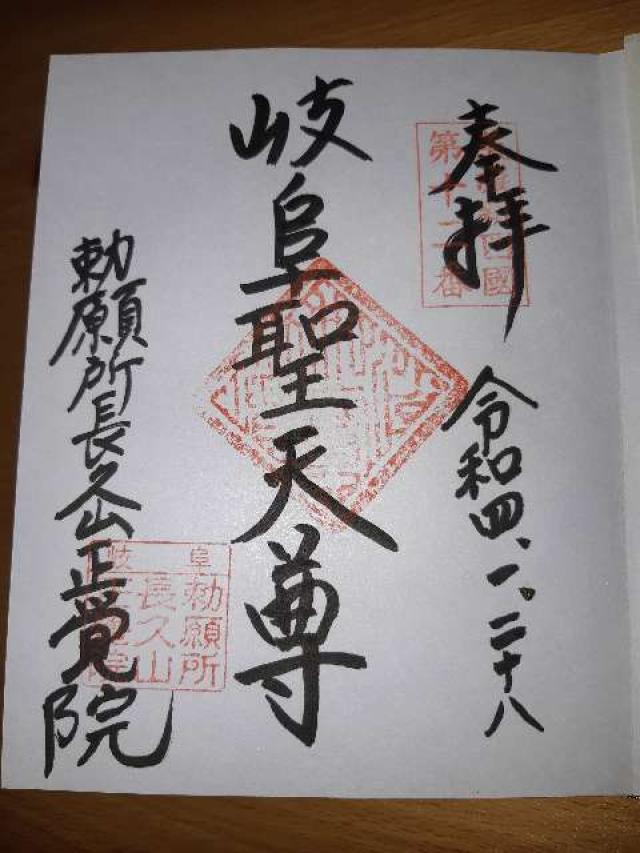 奉拝
令和四、一、二十八
第十二番
岐阜聖天尊
勅願所長久山正覚院
岐阜
勅願所
長久山